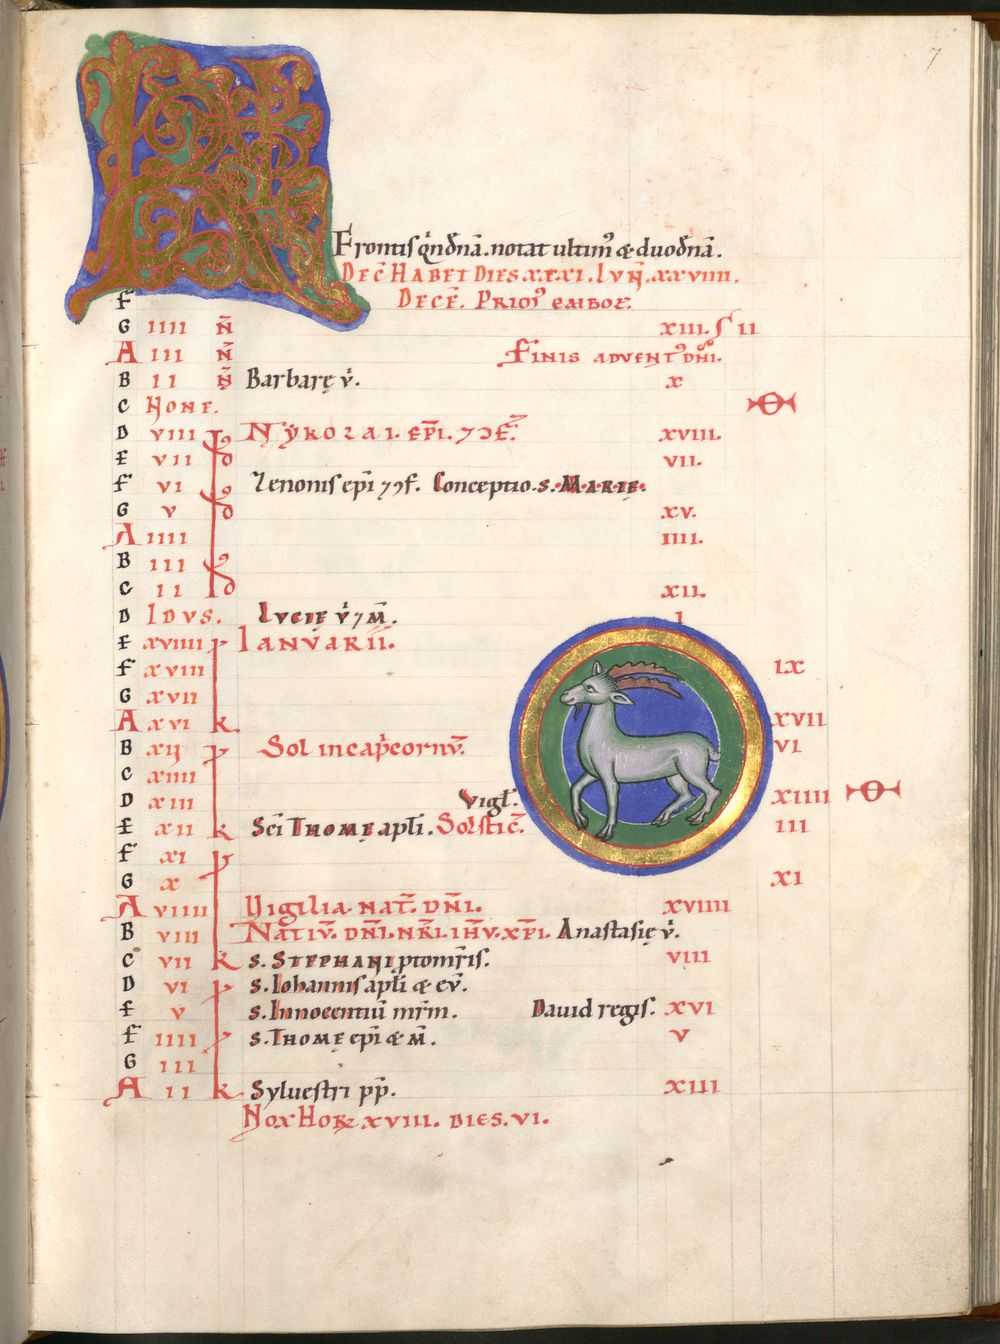 7
KL
Frontis q̇ndn̄a. notat ultimꝰ & duodn̄a.
DEC̄ HABET DIES.XXXI. LVN̄.XXVIIII.
F DECĒ. PRIOꝰ EMBOƐ.
G IIII N̄ XIII. S II
A III N̄ FINIS ADVENTꝰ DN̄I.
B II N̄ Barbarę v̇. X
C NONE.
D VIII ID NẏKOLAI. EP̄I. ⁊ ↄF̄. XVIII.
E VII VII.
F VI Zenonis ep̄i ⁊ ↄf. Conceptio. s. MARIE.
G V XV.
A IIII IIII.
B III
C II XII.
D IDVS. LVCIĘ v̇ ⁊ M̄. I
E XVIIII K IANVARII.
F XVIII IX
G XVII
A XVI K XVII
B XV Sol in cap̄cornū. VI
C XIIII
D XIII Vigł. XIIII
E XII K Sc̄i THOMĘ apłi. Solstic̄. III
F XI
G X XI
A VIIII Vigilia NAT̄. DN̄I. XVIIII
B VIII NATIV̄. DN̄I. NR̄I. IH̄V. XP̄I. Anastasię v̇.
C VII K s. STEPHANI ptom̄ris. VIII
D VI s. Iohannis apłi & ev̄.
E V s. Innocentiū mr̄m. Dauid regis. XVI
F IIII s. THOMĘ ep̄i & M̄. V
G III
A II K Syluestri pp̄. XIII
NOX HOR XVIII. DIES. VI.